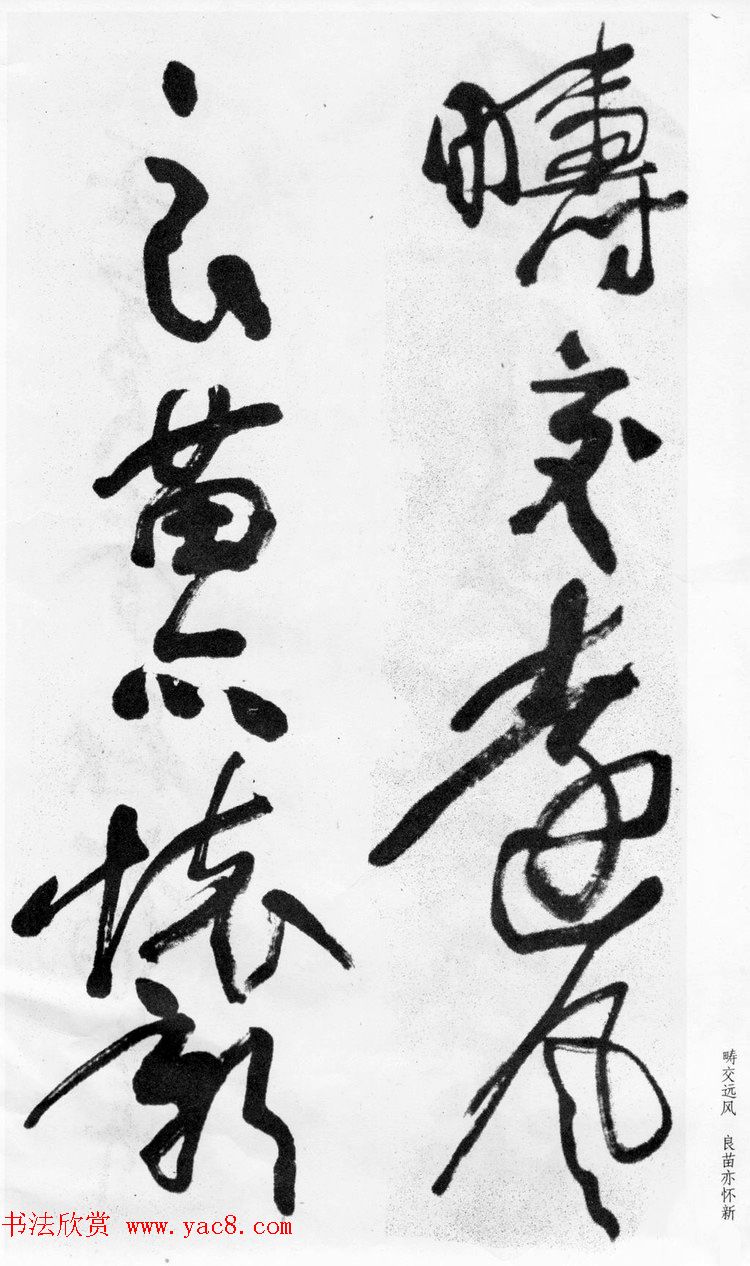 疇交遠風
良苗亦懷新
畴交远风 良苗亦怀新
书法欣赏 www.yac8.com